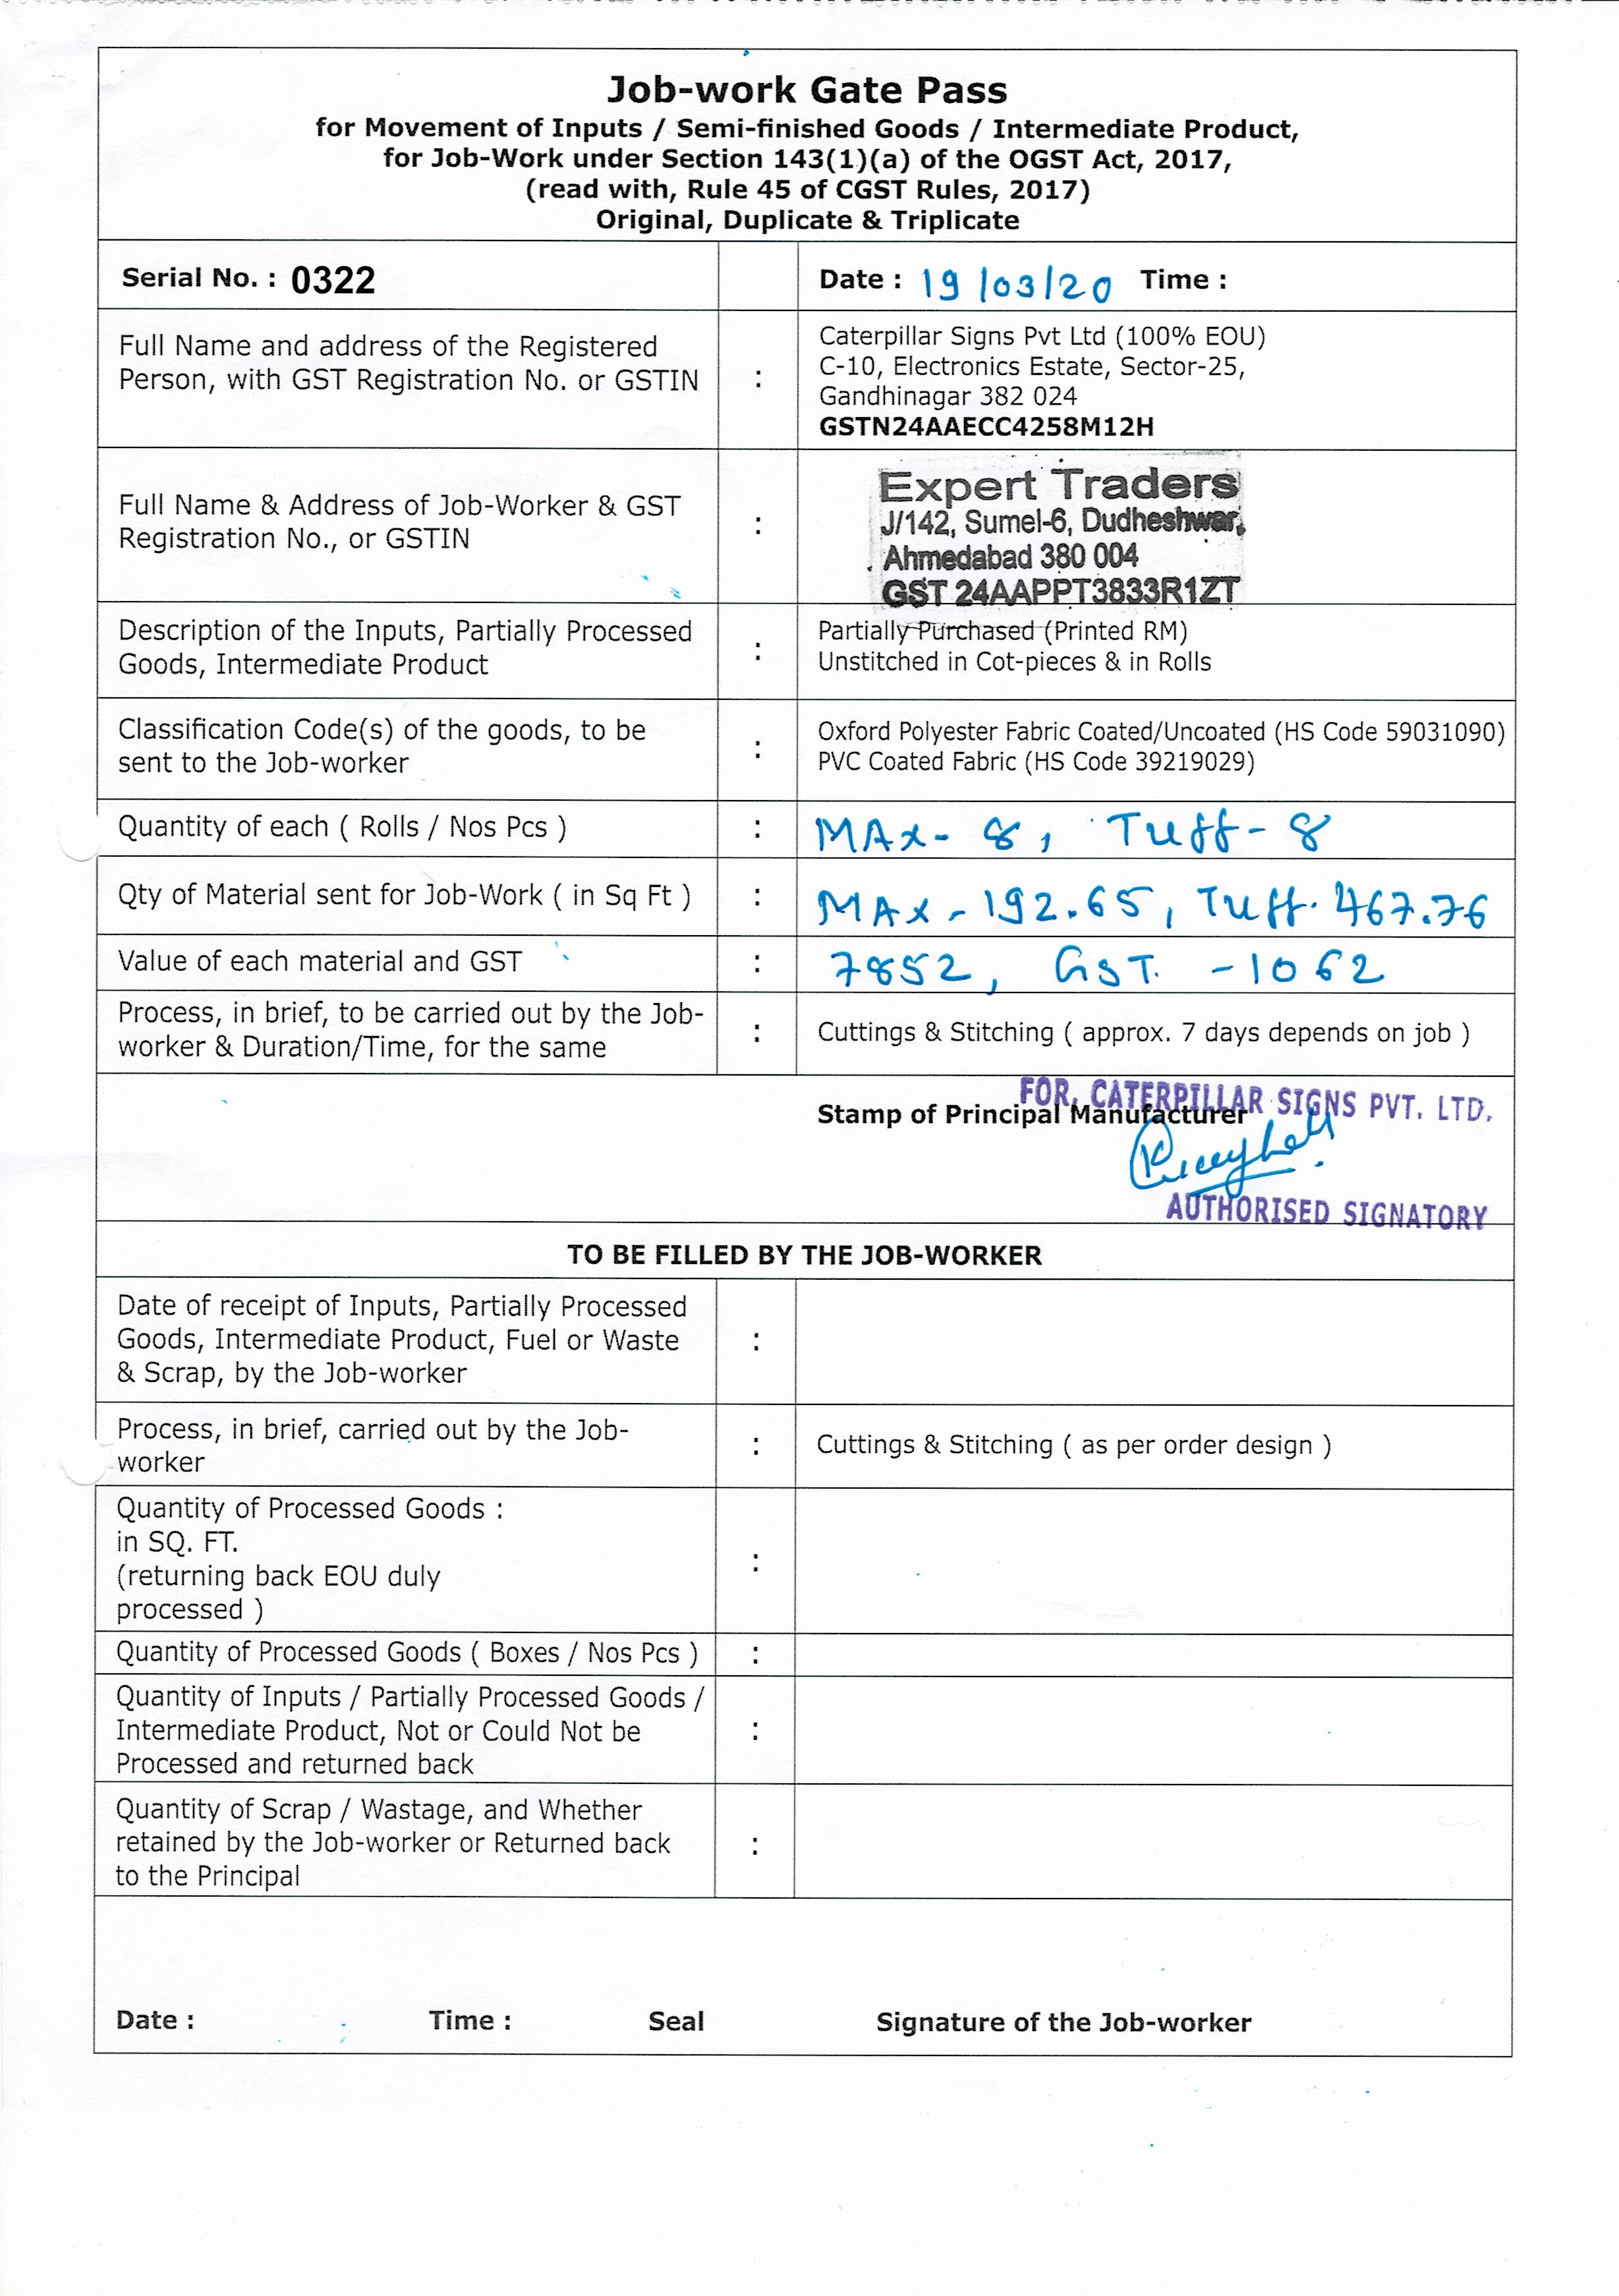 Job-work Gate Pass
for Movement of Inputs / Semi-finished Goods / Intermediate Product,
for Job-Work under Section 143(1)(a) of the OGST Act, 2017,
(read with, Rule 45 of CGST Rules, 2017)
Original, Duplicate & Triplicate
Serial No. : 0322
Date : 19/03/20 Time :
Full Name and address of the Registered
Person, with GST Registration No. or GSTIN
:
Caterpillar Signs Pvt Ltd (100% EOU)
C-10, Electronics Estate, Sector-25,
Gandhinagar 382 024
GSTN24AAECC4258M12H
Full Name & Address of Job-Worker & GST
Registration No., or GSTIN
:
Expert Traders
J/142, Sumel-6, Dudheshwar,
Ahmedabad 380 004
GST 24AAPPT3833R1ZT
Description of the Inputs, Partially Processed
Goods, Intermediate Product
:
Partially Purchased (Printed RM)
Unstitched in Cot-pieces & in Rolls
Classification Code(s) of the goods, to be
sent to the Job-worker
:
Oxford Polyester Fabric Coated/Uncoated (HS Code 59031090)
PVC Coated Fabric (HS Code 39219029)
Quantity of each ( Rolls / Nos Pcs ) : MAx- 8, Tuff- 8
Qty of Material sent for Job-Work ( in Sq Ft ) : MAx - 192.65, Tuff. 467.76
Value of each material and GST : 7852, GST. - 1062
Process, in brief, to be carried out by the Job-
worker & Duration/Time, for the same
:
Cuttings & Stitching ( approx. 7 days depends on job )
FOR, CATERPILLAR SIGNS PVT. LTD.
Stamp of Principal Manufacturer
AUTHORISED SIGNATORY
TO BE FILLED BY THE JOB-WORKER
Date of receipt of Inputs, Partially Processed
Goods, Intermediate Product, Fuel or Waste
& Scrap, by the Job-worker
:
Process, in brief, carried out by the Job-
worker
:
Cuttings & Stitching ( as per order design )
Quantity of Processed Goods :
in SQ. FT.
(returning back EOU duly
processed )
:
Quantity of Processed Goods ( Boxes / Nos Pcs ) :
Quantity of Inputs / Partially Processed Goods /
Intermediate Product, Not or Could Not be
Processed and returned back
:
Quantity of Scrap / Wastage, and Whether
retained by the Job-worker or Returned back
to the Principal
:
Date : Time : Seal Signature of the Job-worker